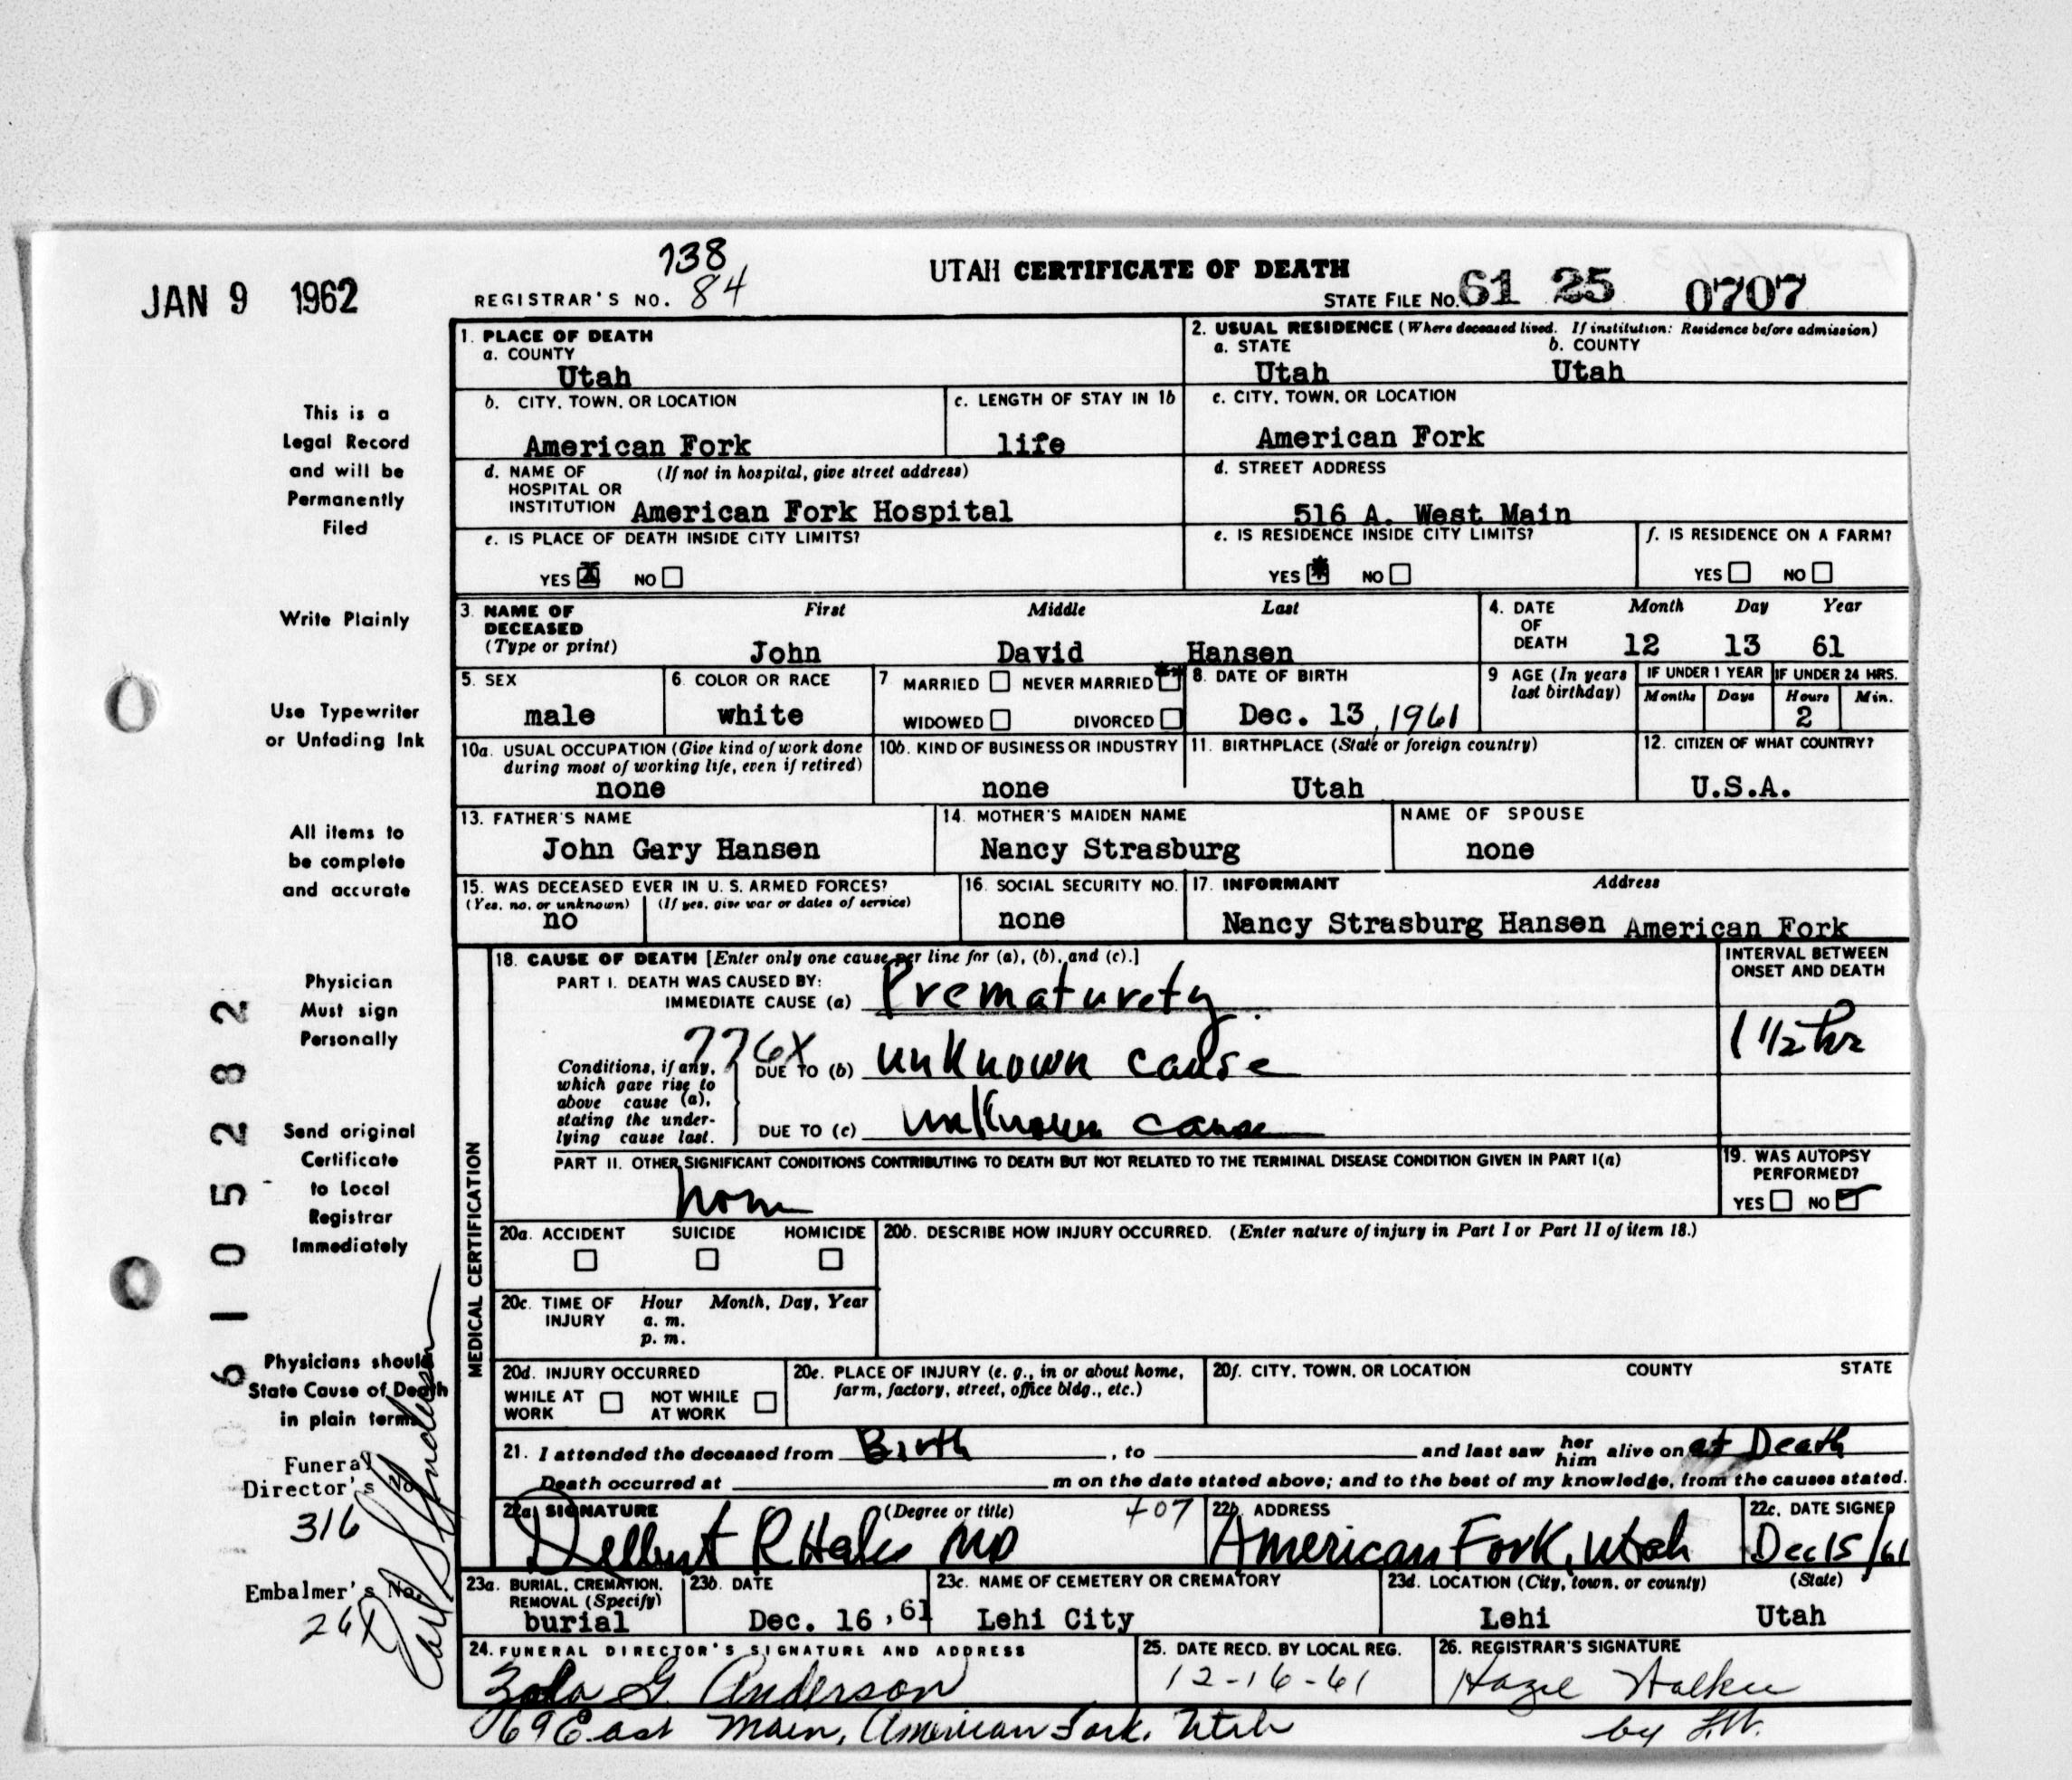 JAN 9 1962
738
UTAH CERTIFICATE OF DEATH
REGISTRAR'S NO. 84
STATE FILE No. 61 25 0707
1. PLACE OF DEATH
a. COUNTY
Utah
2. USUAL RESIDENCE (Where deceased lived. If institution: Residence before admission)
a. STATE b. COUNTY
Utah Utah
b. CITY, TOWN, OR LOCATION
American Fork
c. LENGTH OF STAY IN 1b
life
c. CITY, TOWN, OR LOCATION
American Fork
d. NAME OF HOSPITAL OR INSTITUTION (If not in hospital, give street address)
American Fork Hospital
d. STREET ADDRESS
516 A. West Main
e. IS PLACE OF DEATH INSIDE CITY LIMITS?
YES X NO
e. IS RESIDENCE INSIDE CITY LIMITS?
YES * NO
f. IS RESIDENCE ON A FARM?
YES NO
3. NAME OF DECEASED (Type or print)
First Middle Last
John David Hansen
4. DATE OF DEATH
Month Day Year
12 13 61
5. SEX
male
6. COLOR OR RACE
white
7 MARRIED NEVER MARRIED **
WIDOWED DIVORCED
8. DATE OF BIRTH
Dec. 13, 1961
9 AGE (In years last birthday)
IF UNDER 1 YEAR
Months Days
IF UNDER 24 HRS.
Hours Min.
2
10a. USUAL OCCUPATION (Give kind of work done during most of working life, even if retired)
none
10b. KIND OF BUSINESS OR INDUSTRY
none
11. BIRTHPLACE (State or foreign country)
Utah
12. CITIZEN OF WHAT COUNTRY?
U.S.A.
13. FATHER'S NAME
John Gary Hansen
14. MOTHER'S MAIDEN NAME
Nancy Strasburg
NAME OF SPOUSE
none
15. WAS DECEASED EVER IN U. S. ARMED FORCES?
(Yes, no, or unknown) (If yes, give war or dates of service)
no
16. SOCIAL SECURITY NO.
none
17. INFORMANT Address
Nancy Strasburg Hansen American Fork
MEDICAL CERTIFICATION
18. CAUSE OF DEATH [Enter only one cause per line for (a), (b), and (c).]
INTERVAL BETWEEN ONSET AND DEATH
PART I. DEATH WAS CAUSED BY:
IMMEDIATE CAUSE (a) Prematurety.
1 1/2 hr
776X
Conditions, if any, which gave rise to above cause (a), stating the underlying cause last.
DUE TO (b) unknown cause
DUE TO (c) unknown cause
PART II. OTHER SIGNIFICANT CONDITIONS CONTRIBUTING TO DEATH BUT NOT RELATED TO THE TERMINAL DISEASE CONDITION GIVEN IN PART I(a)
none
19. WAS AUTOPSY PERFORMED?
YES NO
20a. ACCIDENT SUICIDE HOMICIDE
20b. DESCRIBE HOW INJURY OCCURRED. (Enter nature of injury in Part I or Part II of item 18.)
20c. TIME OF INJURY Hour Month, Day, Year
a. m.
p. m.
20d. INJURY OCCURRED
WHILE AT WORK NOT WHILE AT WORK
20e. PLACE OF INJURY (e. g., in or about home, farm, factory, street, office bldg., etc.)
20f. CITY, TOWN, OR LOCATION COUNTY STATE
21. I attended the deceased from Birth, to and last saw her him alive on at Death
Death occurred at m on the date stated above; and to the best of my knowledge, from the causes stated.
22a. SIGNATURE (Degree or title) 407
Delbert R Hales MD
22b. ADDRESS
American Fork, Utah
22c. DATE SIGNED
Dec 15/61
23a. BURIAL, CREMATION, REMOVAL (Specify)
burial
23b. DATE
Dec. 16, 61
23c. NAME OF CEMETERY OR CREMATORY
Lehi City
23d. LOCATION (City, town, or county) (State)
Lehi Utah
24. FUNERAL DIRECTOR'S SIGNATURE AND ADDRESS
G. Anderson
69 East Main, American Fork, Utah
25. DATE RECD. BY LOCAL REG.
12-16-61
26. REGISTRAR'S SIGNATURE
Walker
by
This is a
Legal Record
and will be
Permanently
Filed
Write Plainly
Use Typewriter
or Unfading Ink
All items to
be complete
and accurate
Physician
Must sign
Personally
Send original
Certificate
to Local
Registrar
Immediately
Physicians should
State Cause of Death
in plain terms
Funeral
Director's No.
316
Embalmer's No.
Anderson
6105282